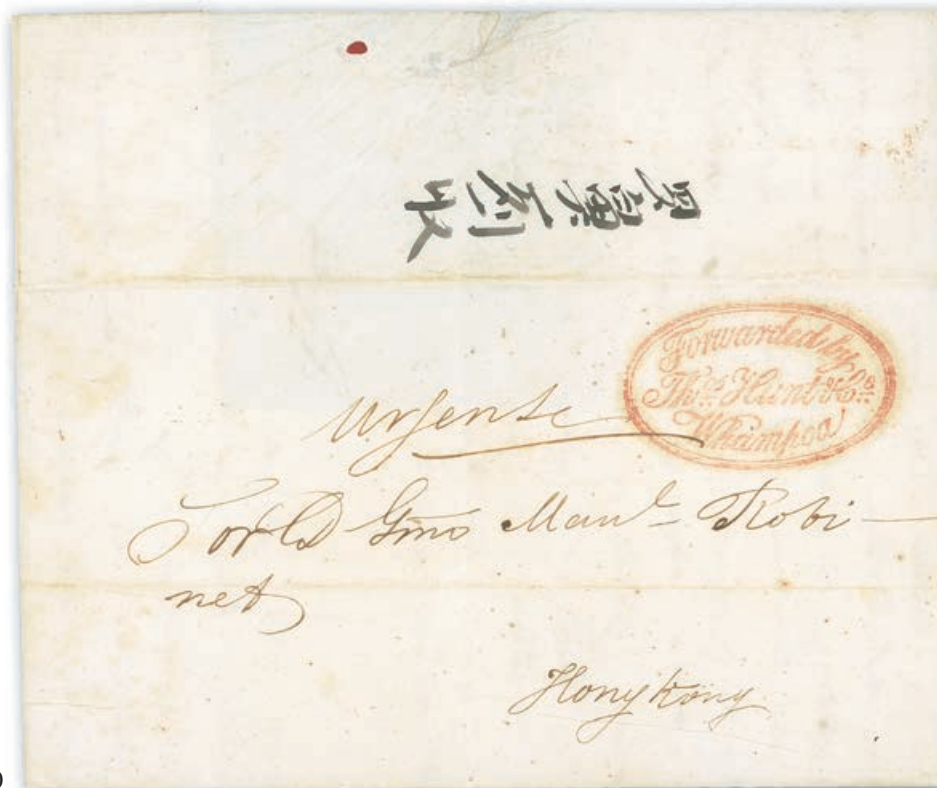 Forwarded by
Thos. Hunt & Co.
Whampoa
Urgente
Sor D Gmo Manl Robi—
net
Hongkong